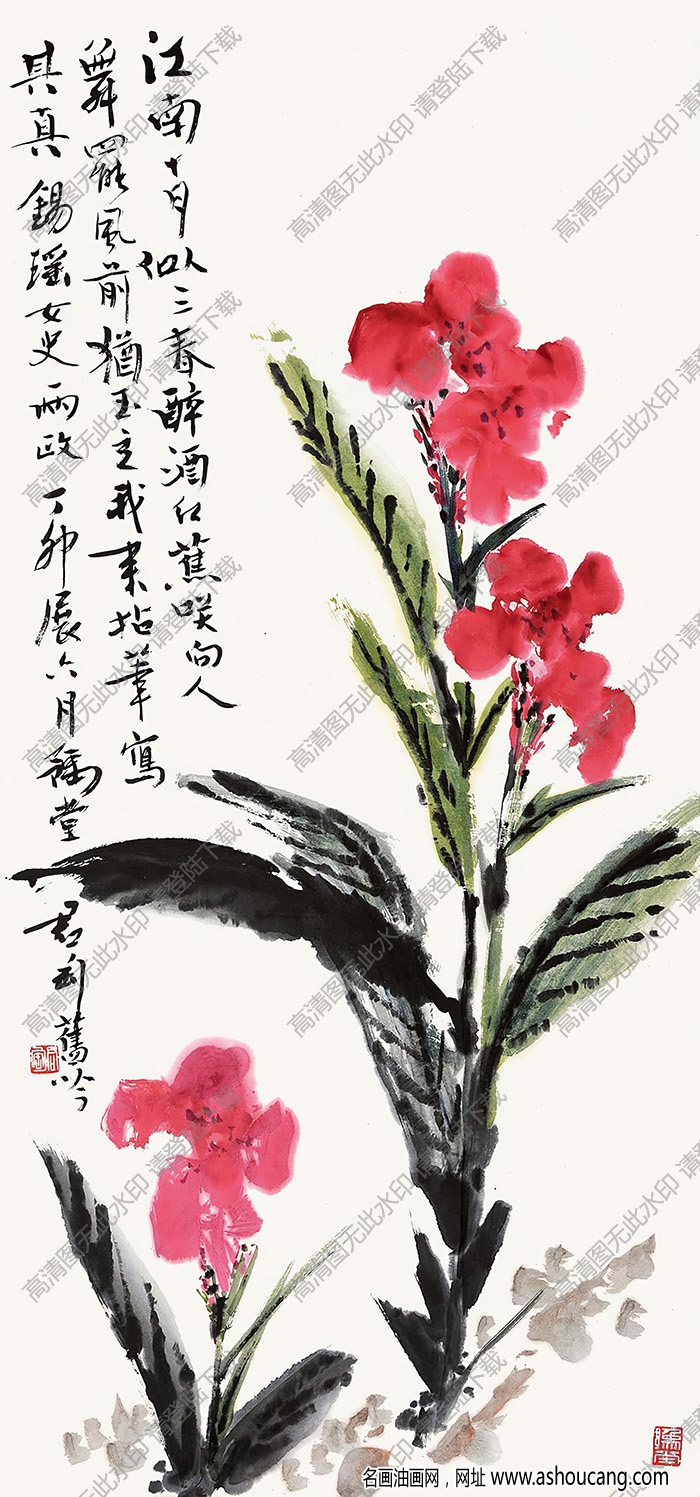 江南十月似三春醉酒红蕉咲向人
舞罷風前猶玉立我来拈筆寫
其真 錫瑶女史両政 丁卯展六月
君
舊吟
高清图无此水印 请登陆下载
名画油画网，网址 www.ashoucang.com